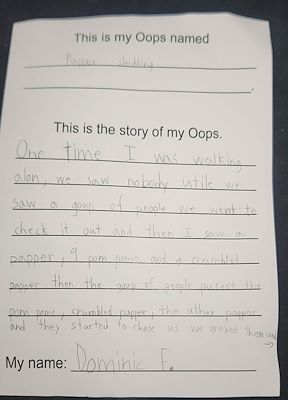 This is my Oops named
Papper sledding
This is the story of my Oops.
One time I was walking
alon, we saw nobody utile we
saw a goup of people we went to
check it out and then I saw a
papper, 9 pom poms and a crumbled
papper then the goup of people pucest the
pom poms, crumbled papper, the ather papper
and they started to chase us we grabed them and
My name: Dominic F.